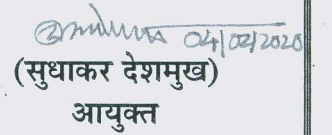 04/02/2020
(सुधाकर देशमुख)
आयुक्त